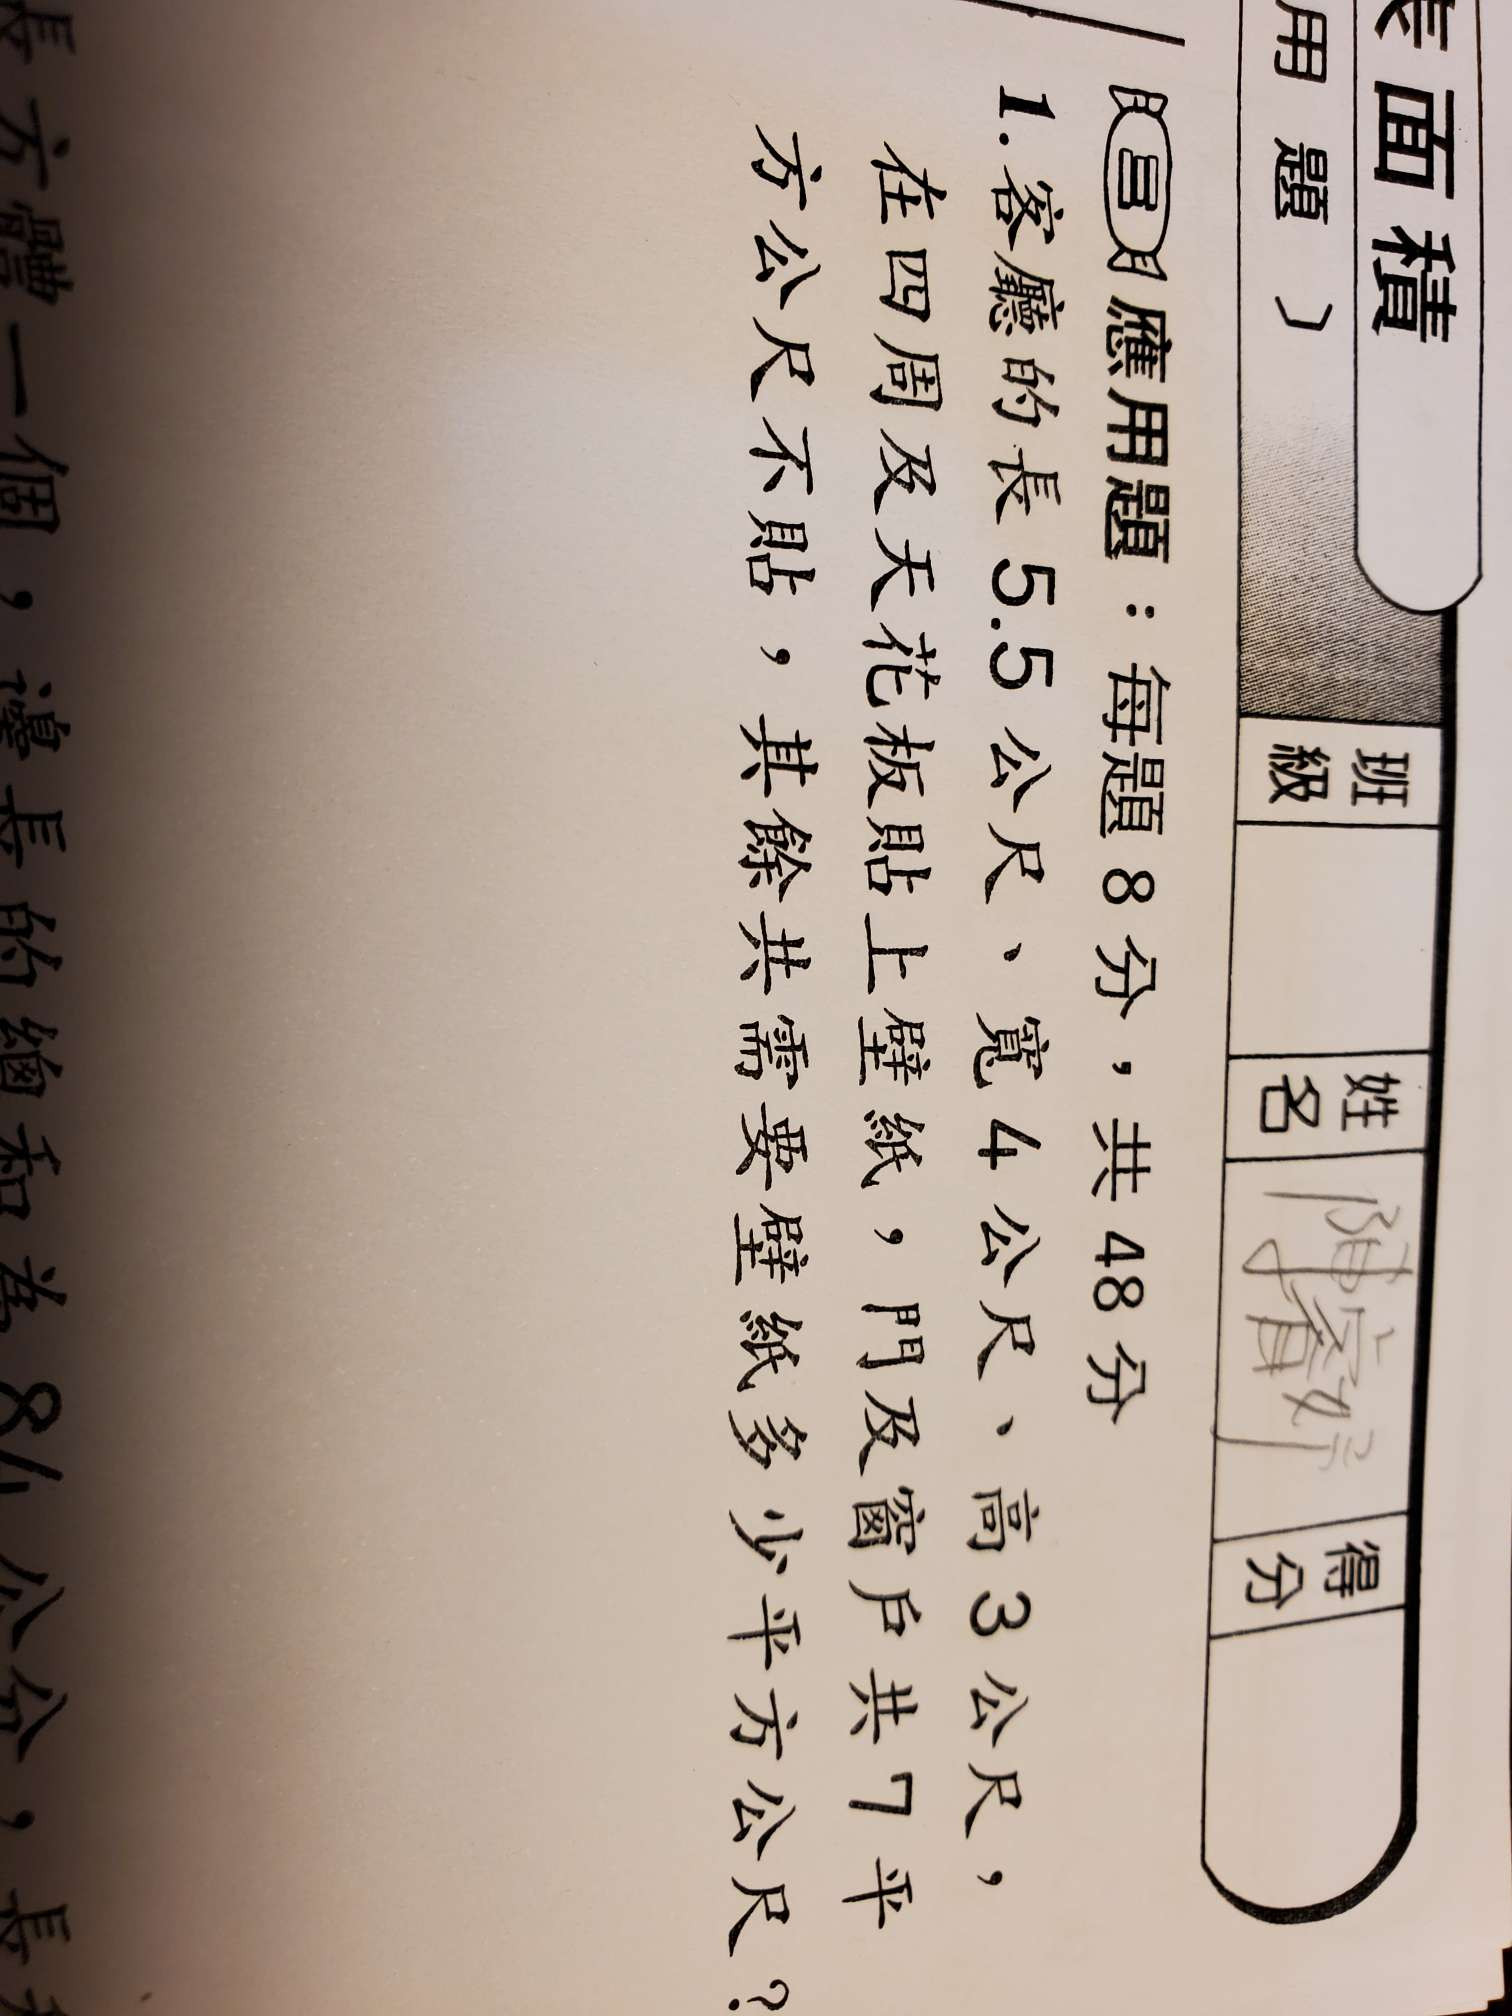 表面積
用題）
班級
姓名
得分
應用題：每題8分，共48分
1.客廳的長5.5公尺、寬4公尺、高3公尺，
在四周及天花板貼上壁紙，門及窗戶共7平
方公尺不貼，其餘共需要壁紙多少平方公尺？
長方體一個，邊長的總和為84公分，長